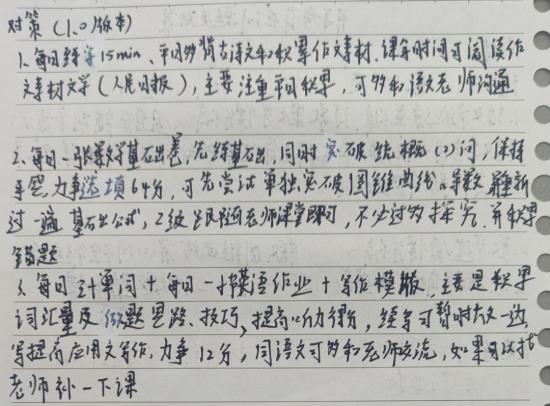 对策（1.0版本）
1、每日练字15min、平日多背古诗文和积累作文素材、课余时间可阅读作
文素材文学（人民日报），主要注重平日积累，可多和语文老师沟通
2、每日一张数学基础卷，先练基础，同时突破统概（2）问，保持
手感，力争选填64分，可先尝试单独突破圆锥曲线、导数，并重新
过一遍基础公式，二级跟随老师课堂即可，不必过多探究，并积累
错题
3、每日 单词+每日一书英语作业+写作模版，主要是积累
词汇量及做题思路、技巧，提高听力得分，续写可暂时放一边，
写提高应用文写作，力争12分，同语文可多和老师交流，如果可以找
老师补一下课